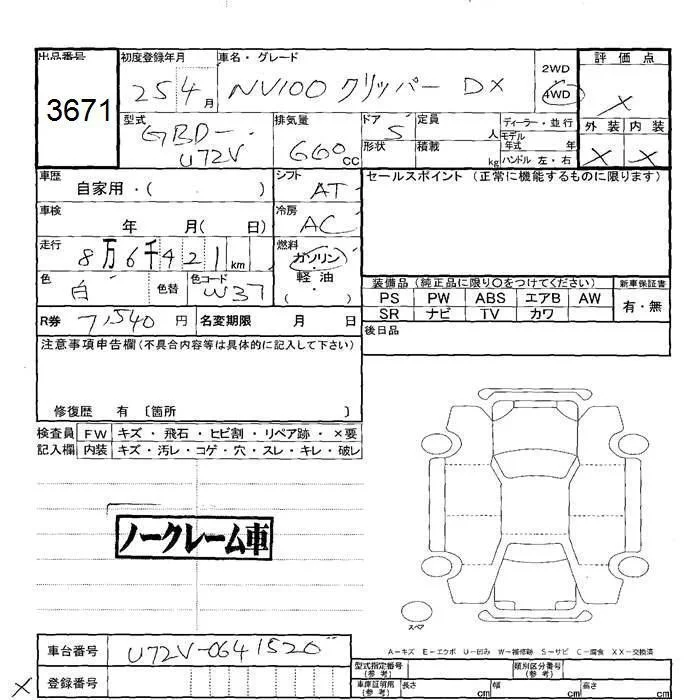 出品番号 初度登録年月 車名・グレード 評価点
3671 25 4月 NV100 クリッパー DX 2WD 4WD X
型式 排気量 ドア 定員 ディーラー・並行 外装 内装
GBD-U72V 660cc 5 人 モデル年式 年 X X
形状 積載 kg ハンドル 左・右
車歴 シフト セールスポイント (正常に機能するものに限ります)
自家用・( ) AT
車検 冷房
年 月( 日) AC
走行 燃料
8万6千421km ガソリン・軽油
色 色替 色コード ( ・ )
白 W37
装備品 (純正品に限り○をつけてください) 新車保証書
PS PW ABS エアB AW 有・無
SR ナビ TV カワ
R券 7,540円 名変期限 月 日 後日品
注意事項申告欄(不具合内容等は具体的に記入して下さい)
修復歴 有 〔箇所 〕
検査員 FW キズ・飛石・ヒビ割・リペア跡・×要
記入欄 内装 キズ・汚レ・コゲ・穴・スレ・キレ・破レ
ノークレーム車
スペア
A-キズ E-エクボ U-凹み W-補修跡 S-サビ C-腐食 XX-交換済
車台番号 U72V-0641520
型式指定番号(参考) 類別区分番号(参考)
X 登録番号
車庫証明用(参考) 長さ cm 幅 cm 高さ cm